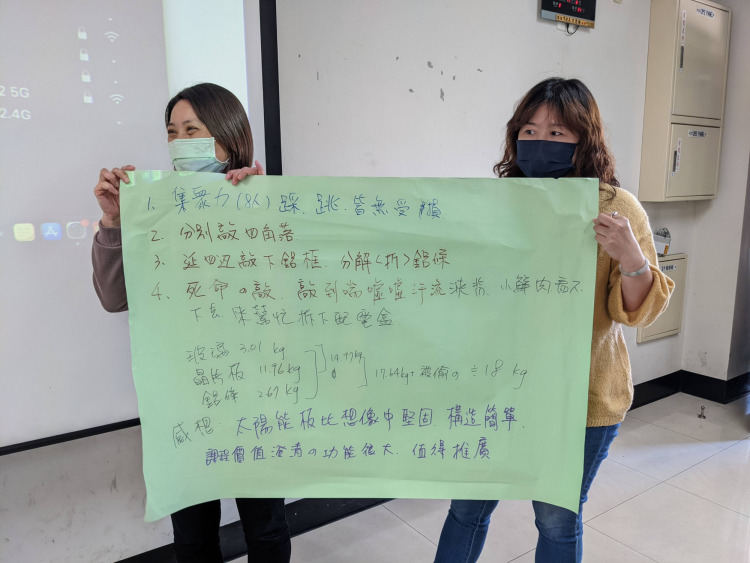 2 5G
2.4G
1. 集眾力(8人)踩、跳、皆無受損
2. 分別敲四角落
3. 延四邊敲下鋁框,分解<折>鋁條
4. 死命の敲,敲到喘噓噓汗流浹背,小鮮肉看不
下去,來幫忙拆下配電盒
玻璃 3.01 kg
晶片板 11.96 kg
鋁條 2.67 kg
14.97kg
17.64kg+被偷の≒18 kg
感想:太陽能板比想像中堅固,構造簡單,
課程價值澄清の功能強大,值得推廣